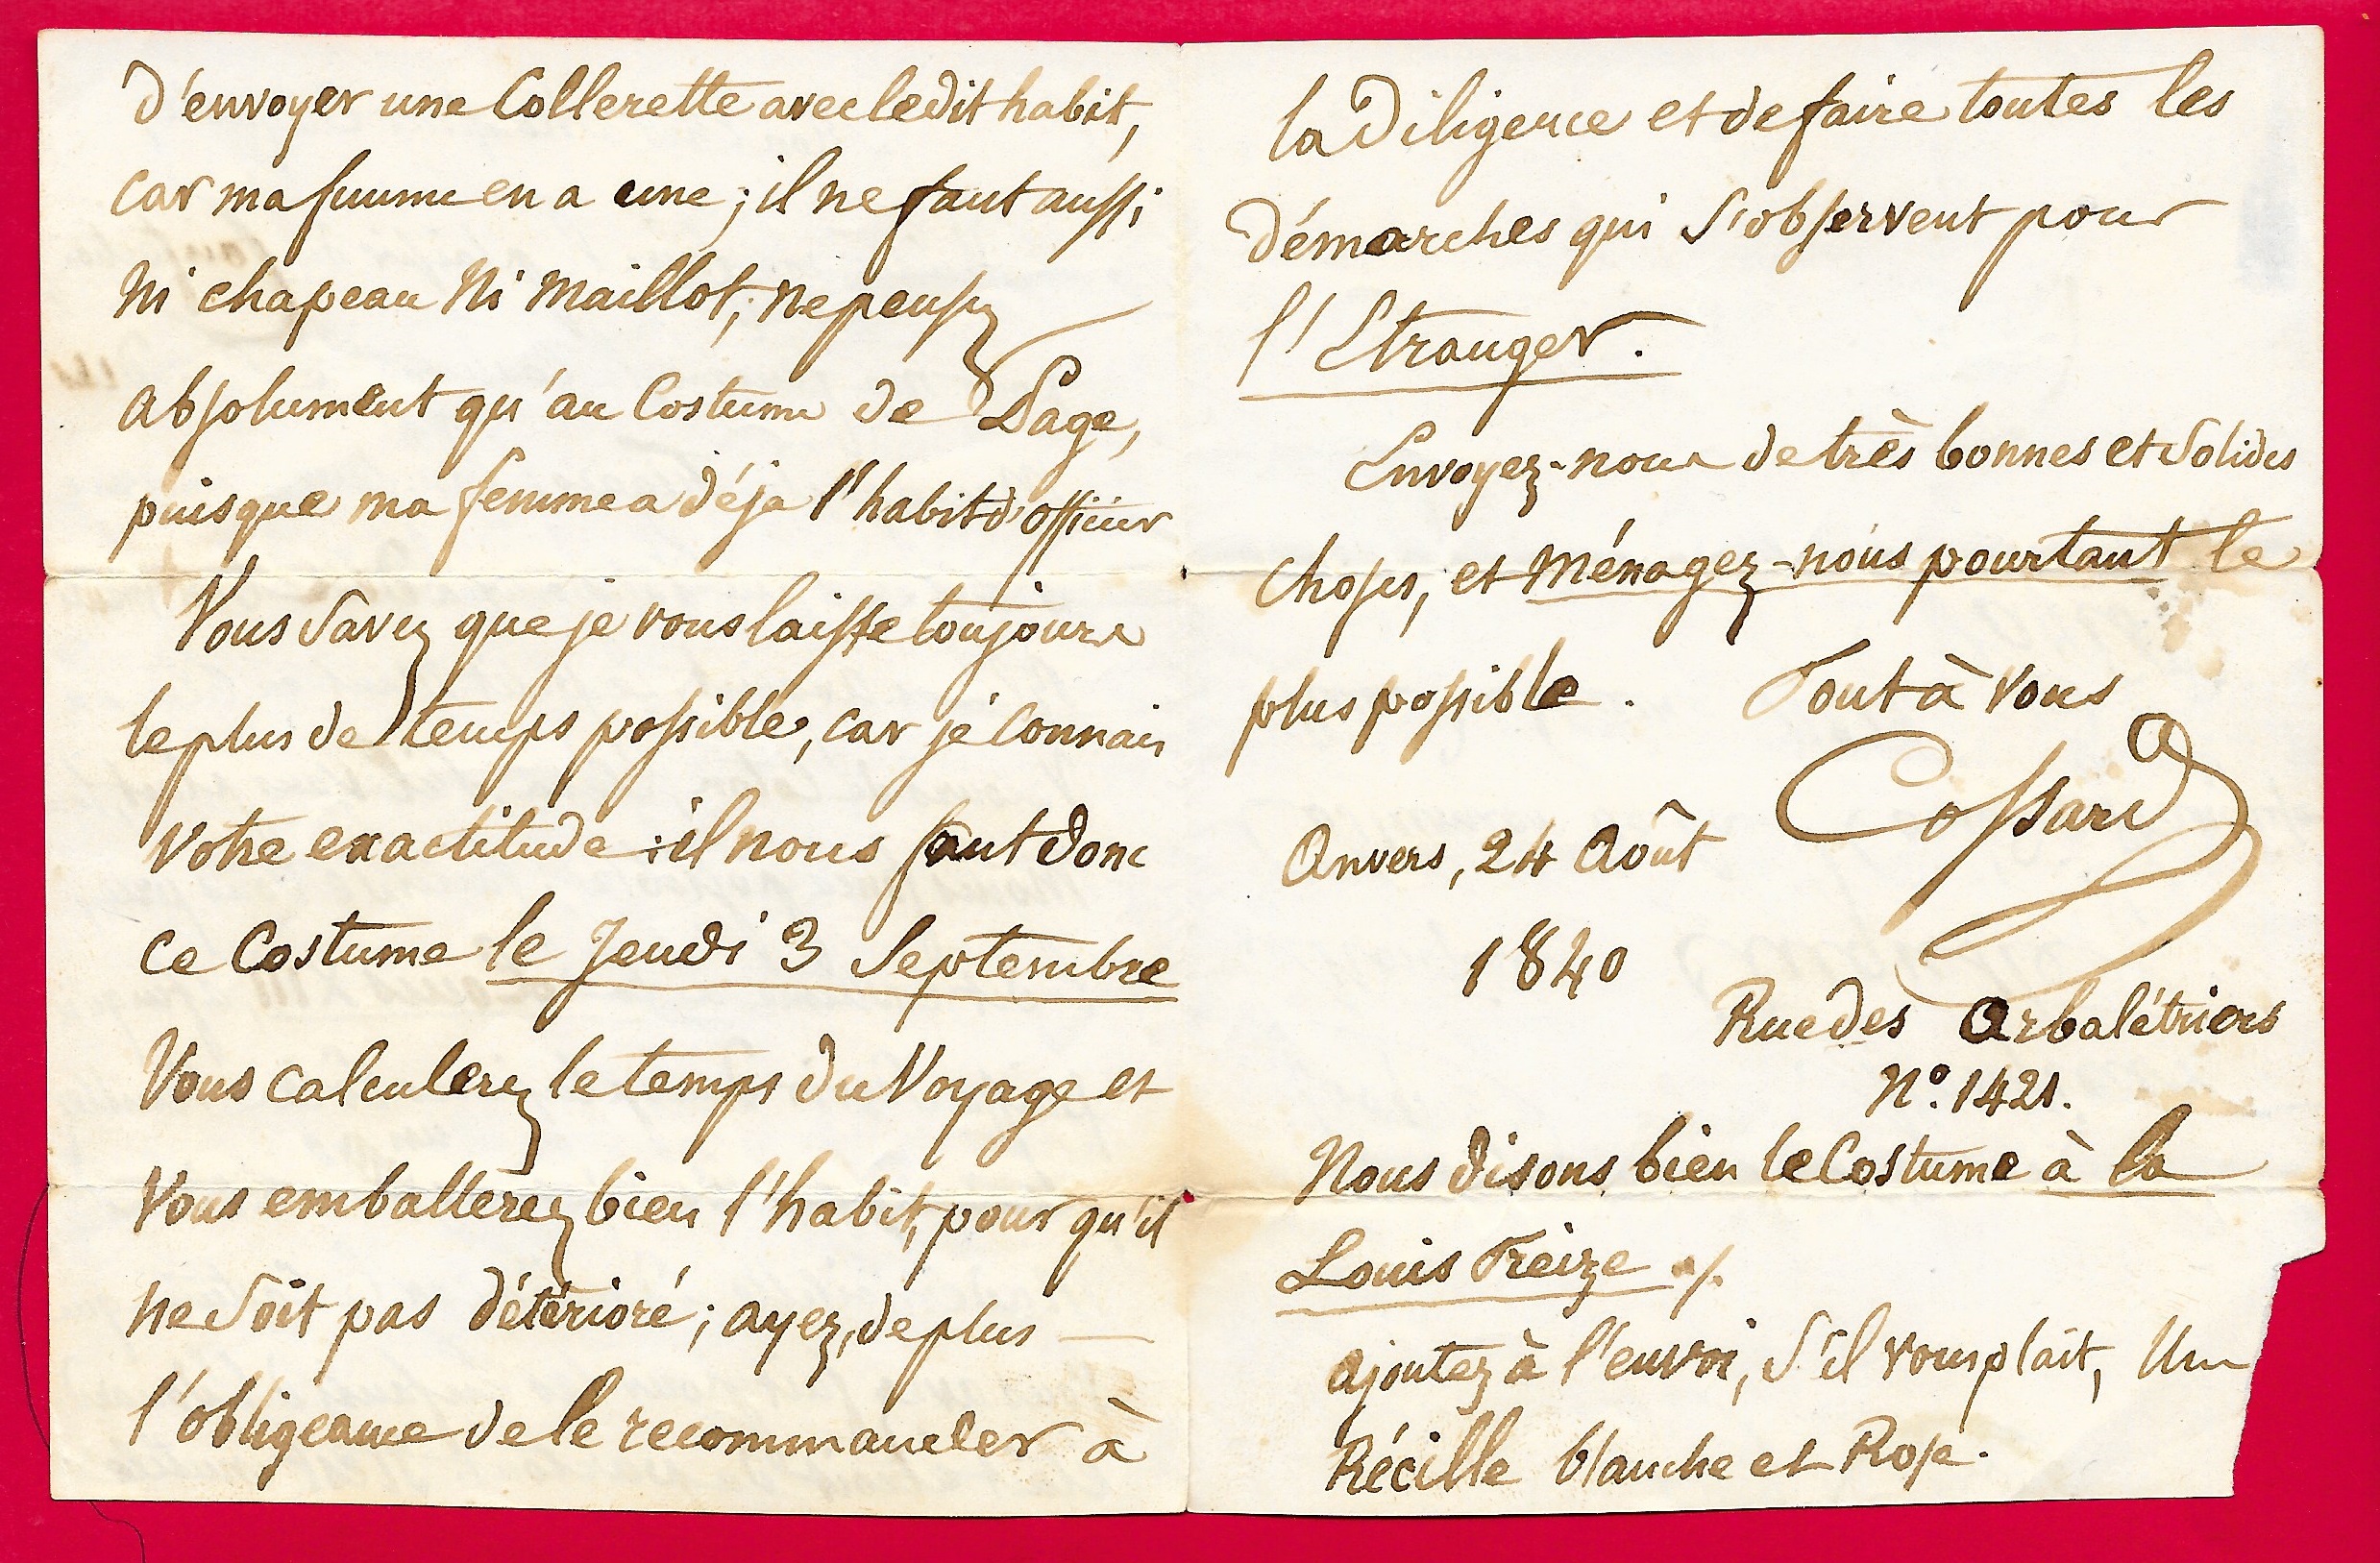 d'envoyer une Collerette avec ledit habit,
car ma femme en a une; il ne faut aussi
ni chapeau ni maillot; ne pensez
absolument qu'au Costume de Page,
puisque ma femme a déja l'habit d'officier
Vous savez que je vous laisse toujours
le plus de temps possible, car je connais
votre exactitude: il nous faut donc
ce Costume le Jeudi 3 Septembre
Vous calculerez le temps du Voyage et
vous emballerez bien l'habit, pour qu'il
ne soit pas détérioré; ayez, de plus
l'obligeance de le recommander à
la Diligence et de faire toutes les
démarches qui s'observent pour
l'Etranger.
Envoyez-nous de très bonnes et solides
choses, et ménagez-nous pourtant le
plus possible. Tout à vous
Cossard
Anvers, 24 Août
1840
Rue des Arbalétriers
N.º 1421.
Nous disons bien le Costume à la
Louis Treize ./.
ajoutez à l'envoi, s'il vous plait, Une
Récille blanche et Rose.